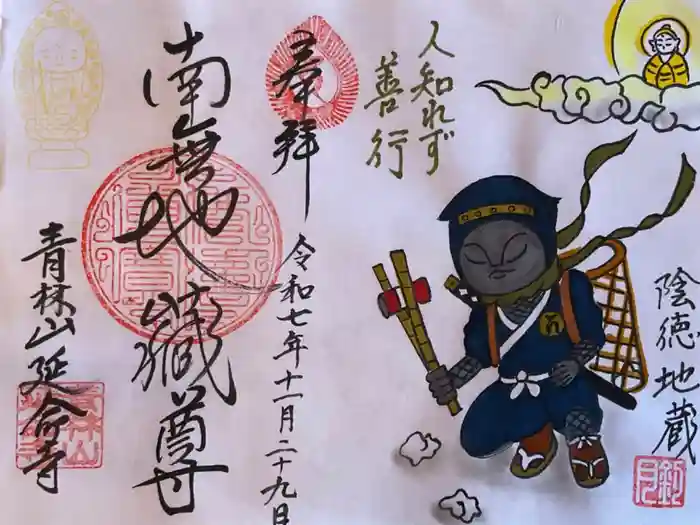 人知れず
善行
陰徳地蔵
奉拝
令和七年十一月二十九日
南無地蔵尊
青林山延命寺